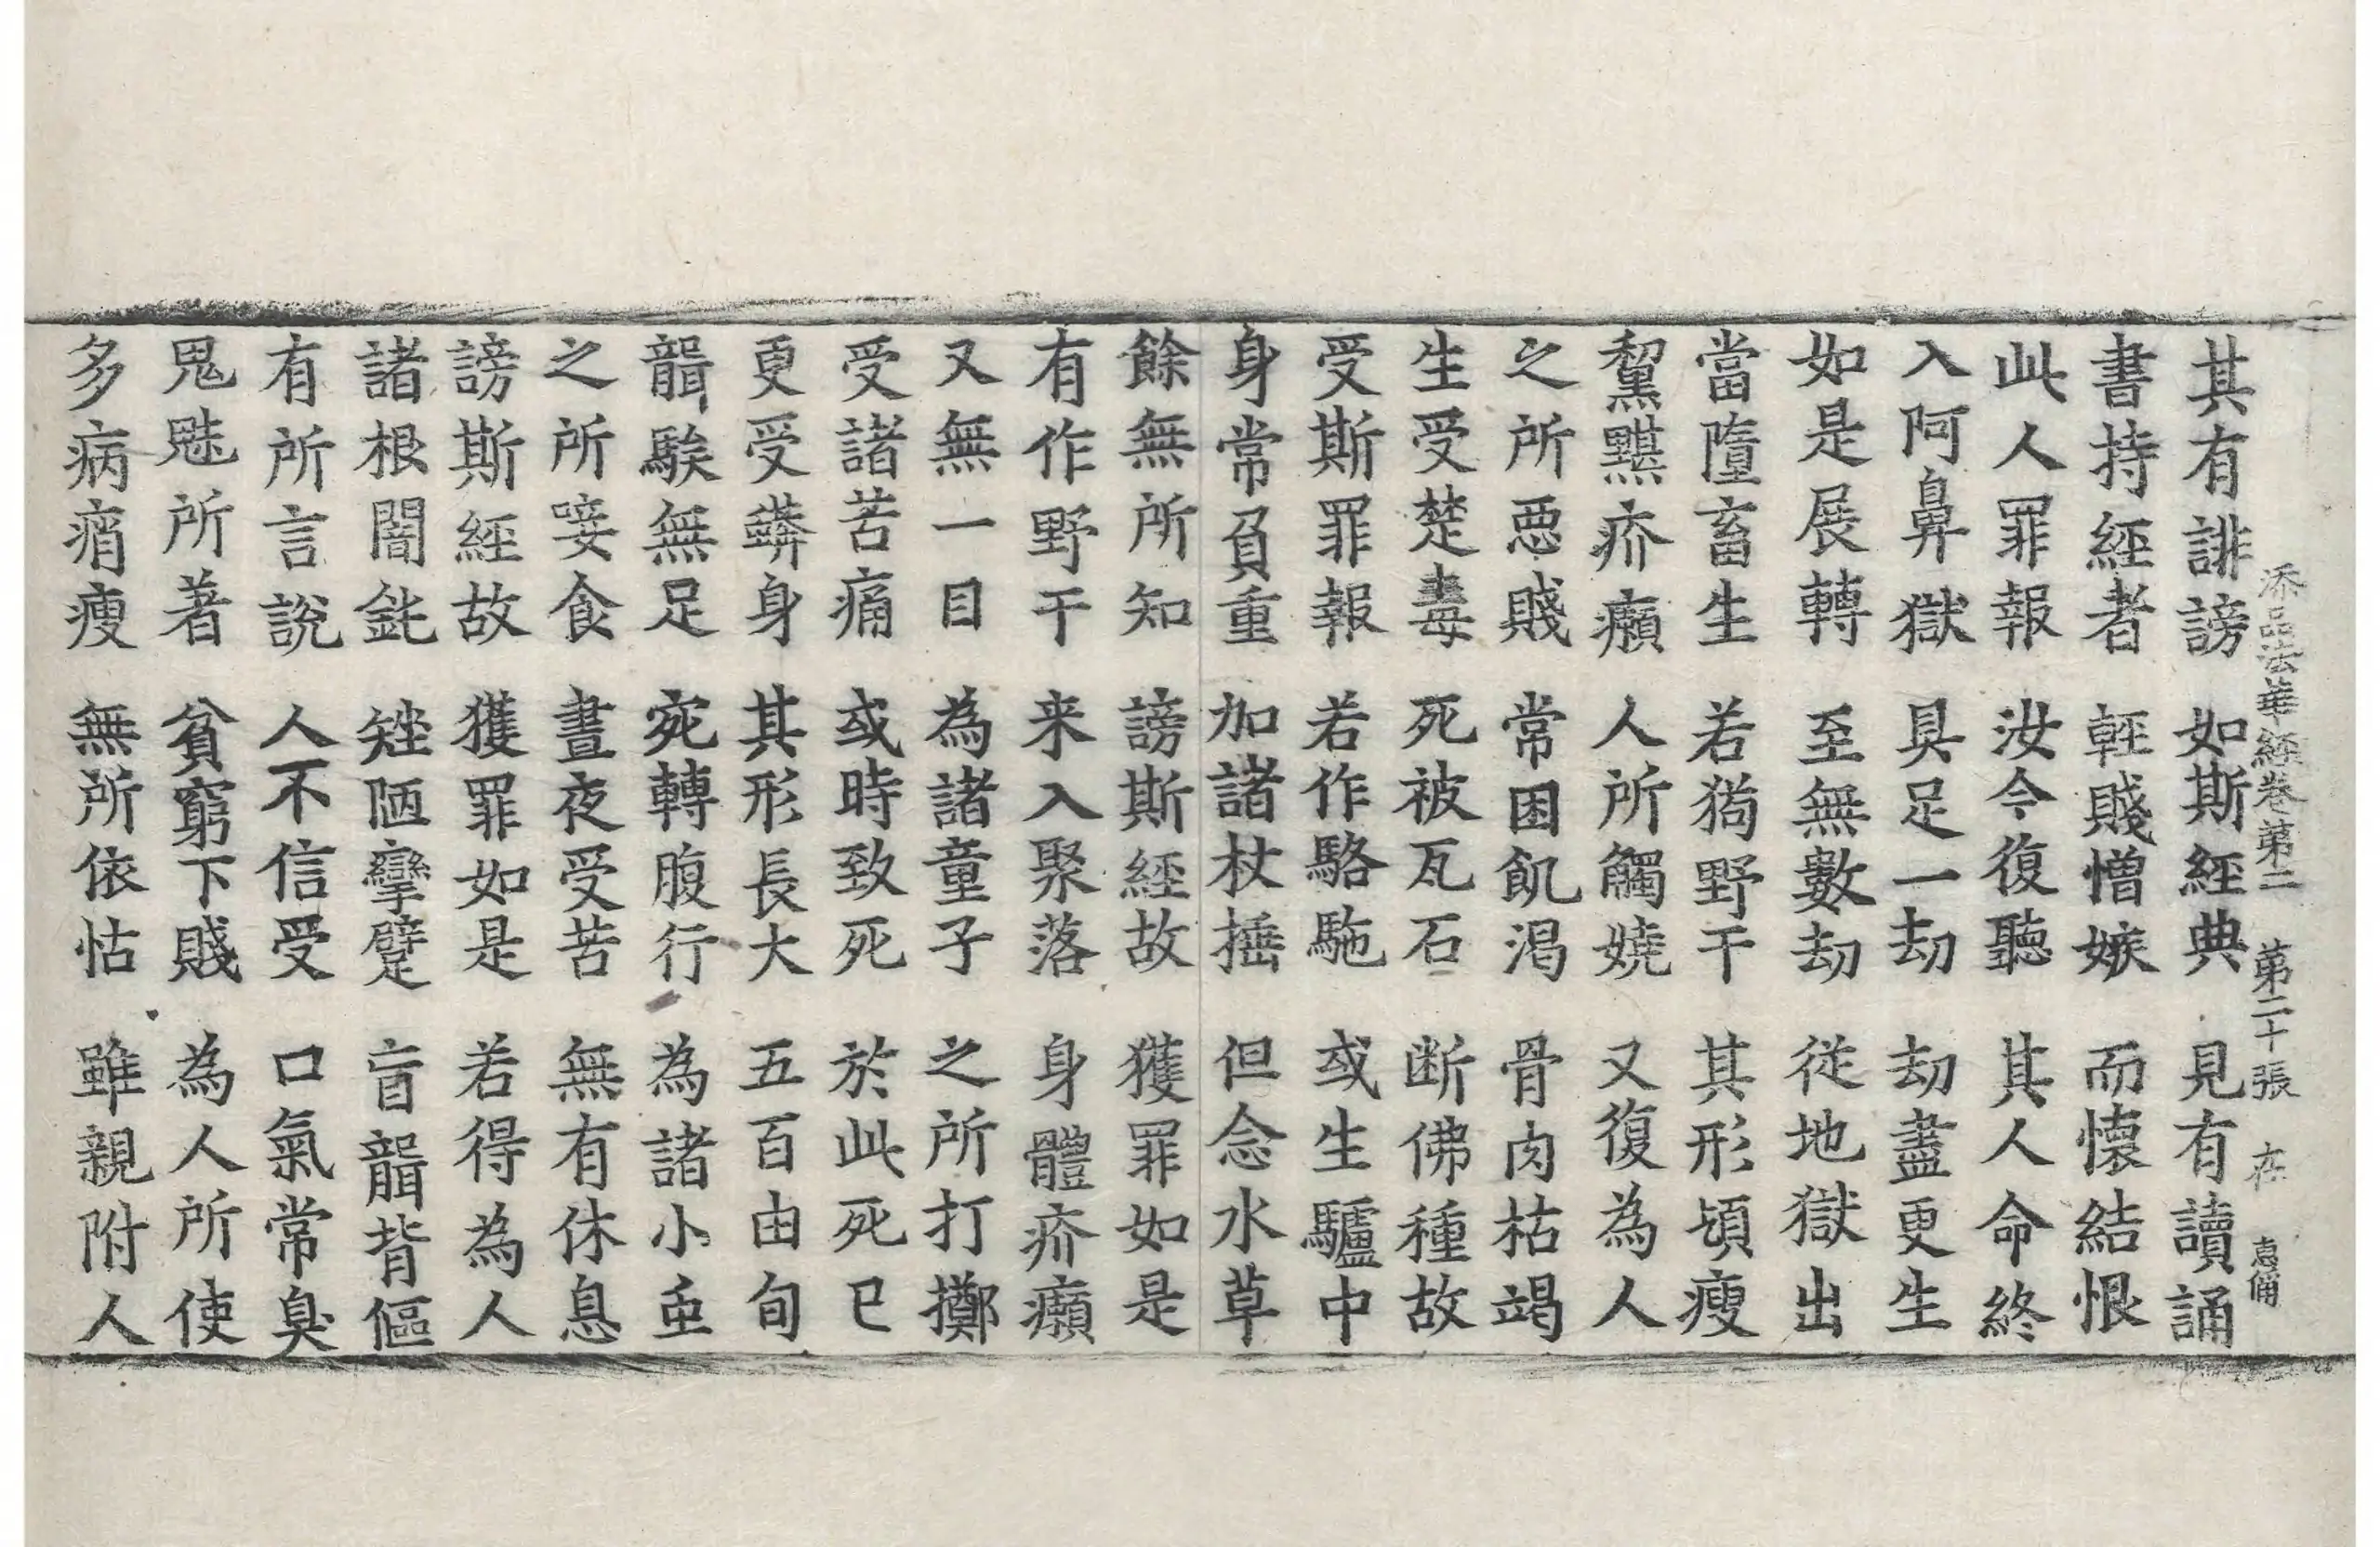 添品法華經卷第二 第二十張 在 惠俻
其有誹謗 如斯經典 見有讀誦
書持經者 輕賤憎嫉 而懷結恨
此人罪報 汝今復聽 其人命終
入阿鼻獄 具足一劫 劫盡更生
如是展轉 至無數劫 從地獄出
當墮畜生 若㺃野干 其形頓瘦
黧黮疥癩 人所觸嬈 又復為人
之所惡賤 常困飢渴 骨肉枯竭
生受楚毒 死被瓦石 断佛種故
受斯罪報 若作駱駞 或生驢中
身常負重 加諸杖捶 但念水草
餘無所知 謗斯經故 獲罪如是
有作野干 来入聚落 身體疥癩
又無一目 為諸童子 之所打擲
受諸苦痛 或時致死 於此死已
更受蟒身 其形長大 五百由旬
聾騃無足 宛轉腹行 為諸小虫
之所唼食 晝夜受苦 無有休息
謗斯經故 獲罪如是 若得為人
諸根闇鈍 矬陋攣躄 盲聾背傴
有所言說 人不信受 口氣常臭
鬼魅所著 貧窮下賤 為人所使
多病痟瘦 無所依怙 雖親附人